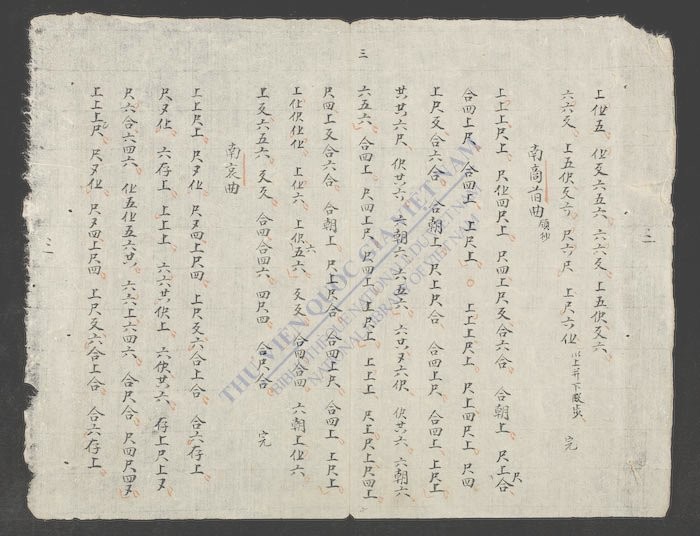 三
上㐌五 㐌㕛六五六 六六㕛 上五伬㕛六
六六㕛 上五伬㕛六 尺六尺 上尺六㐌 以上并下㕑歩 完
南商首曲
上上上尺上 尺㐌四尺上 尺四上尺㕛合六合 合朝上 尺上合
合四上尺 合四上 上尺上 上上上尺上 上尺四尺上 尺四
上尺㕛合六合 合朝上 尺上尺合 合四上尺 合四上 上尺上
共共六尺 伬共六 六朝六 六五六 六共㕛六伬 伬共六 六朝六
六五六 合四上 尺四上尺 尺四上 上尺上 上上上 尺上尺上尺四上
尺四上㕛合六合 合朝上 尺上尺合 合四上尺 合四上 上尺上
上㐌伬㐌㐌 上㐌六 上伬五六 㕛㕛 合四合四 六朝上㐌六
上㕛六五六 㕛㕛 合四合四六 四尺四 合尺合 完
南哀曲
上上尺上 尺㕛㐌 尺㕛四上尺四 上尺㕛六合上合 合六存上
尺㕛㐌 六存上 上上上 六六共伬上 六伬共六 存上尺上㕛
尺六合六四六 㐌五㐌五六共 六六上六四六 合尺合 尺四尺四㕛
上上上尺 尺㕛㐌 尺㕛四上尺四 上尺㕛六合上合 合六存上
THƯ VIỆN QUỐC GIA VIỆT NAM
BIBLIOTHÈQUE NATIONALE DU VIETNAM
NATIONAL LIBRARY OF VIETNAM